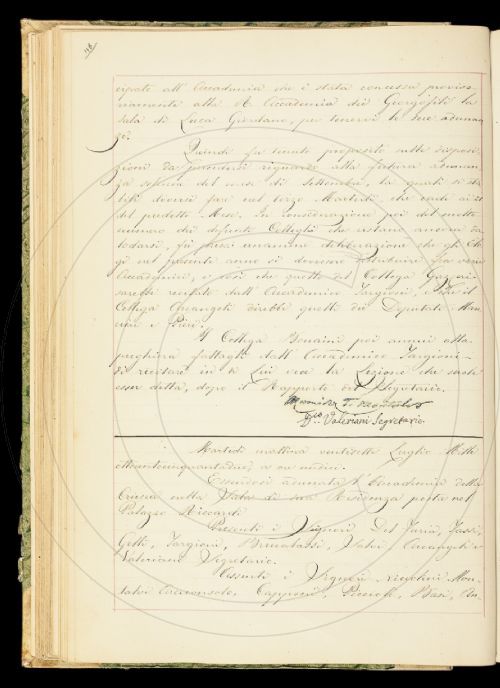 cipato all' Accademia che è stata concessa provviso-
riamente alla R. Accademia dei Georgofili la
Sala di Luca Giordano, per tenervi le sue adunan-
ze.
Quindi fu tenuto proposito sulle disposi-
zioni da prendersi riguardo alla futura adunan-
za solenne del mese di Settembre, la quale si sta-
bilì doversi fare nel terzo Martedì, che cade ai 21
del predetto Mese. In considerazione poi del
numero dei defunti Colleghi che restano ancora da
lodarsi, fu presa unanime deliberazione che gli Elo-
gi nel presente anno si dovessero distribuire fra varii
Accademici, e così che quello del Collega
sarebbe recitato dall' Accademico Targioni, e che il
Collega Arcangeli direbbe quelli dei Deputati
e Pieri.
Il Collega Bonaini poi annuì alla
preghiera fattagli dall' Accademico Targioni
di recitare in di Lui vece la Lezione che
esser detta, dopo il Rapporto del Segretario.
Valeriani Segretario.
Martedì mattina ventisette Luglio Mille
ottocentocinquantadue, a ore undici.
Essendosi adunata l'Accademia della
Crusca nella Sala di sua Residenza posta nel
Palazzo Riccardi
Presenti i Signori Del Furia,
Targioni, Brucalassi, Salvi, Arcangeli e
Valeriani Segretario.
Assenti i Signori Niccolini, Mon-
talvi Arciconsolo, Capponi,